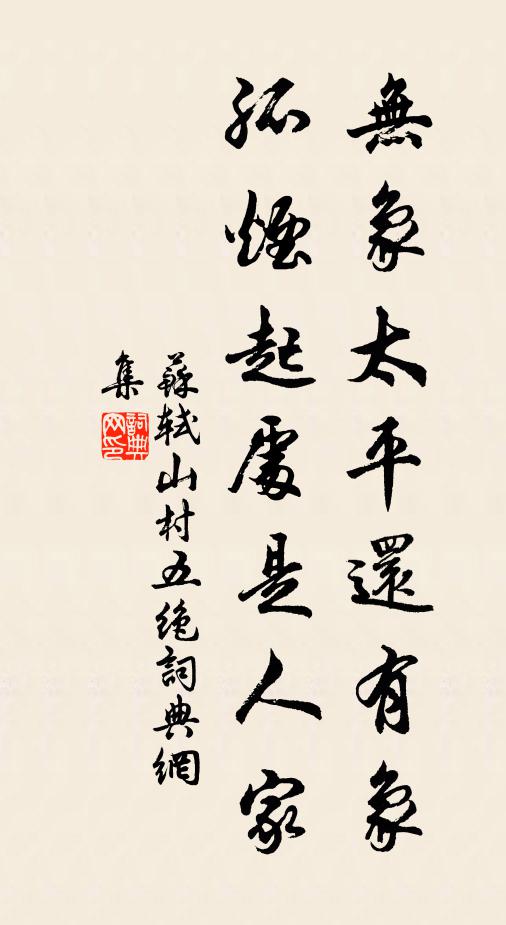 無象太平還有象
孤煙起處是人家
蘇軾山村五絕詞典網
集
詞典網印